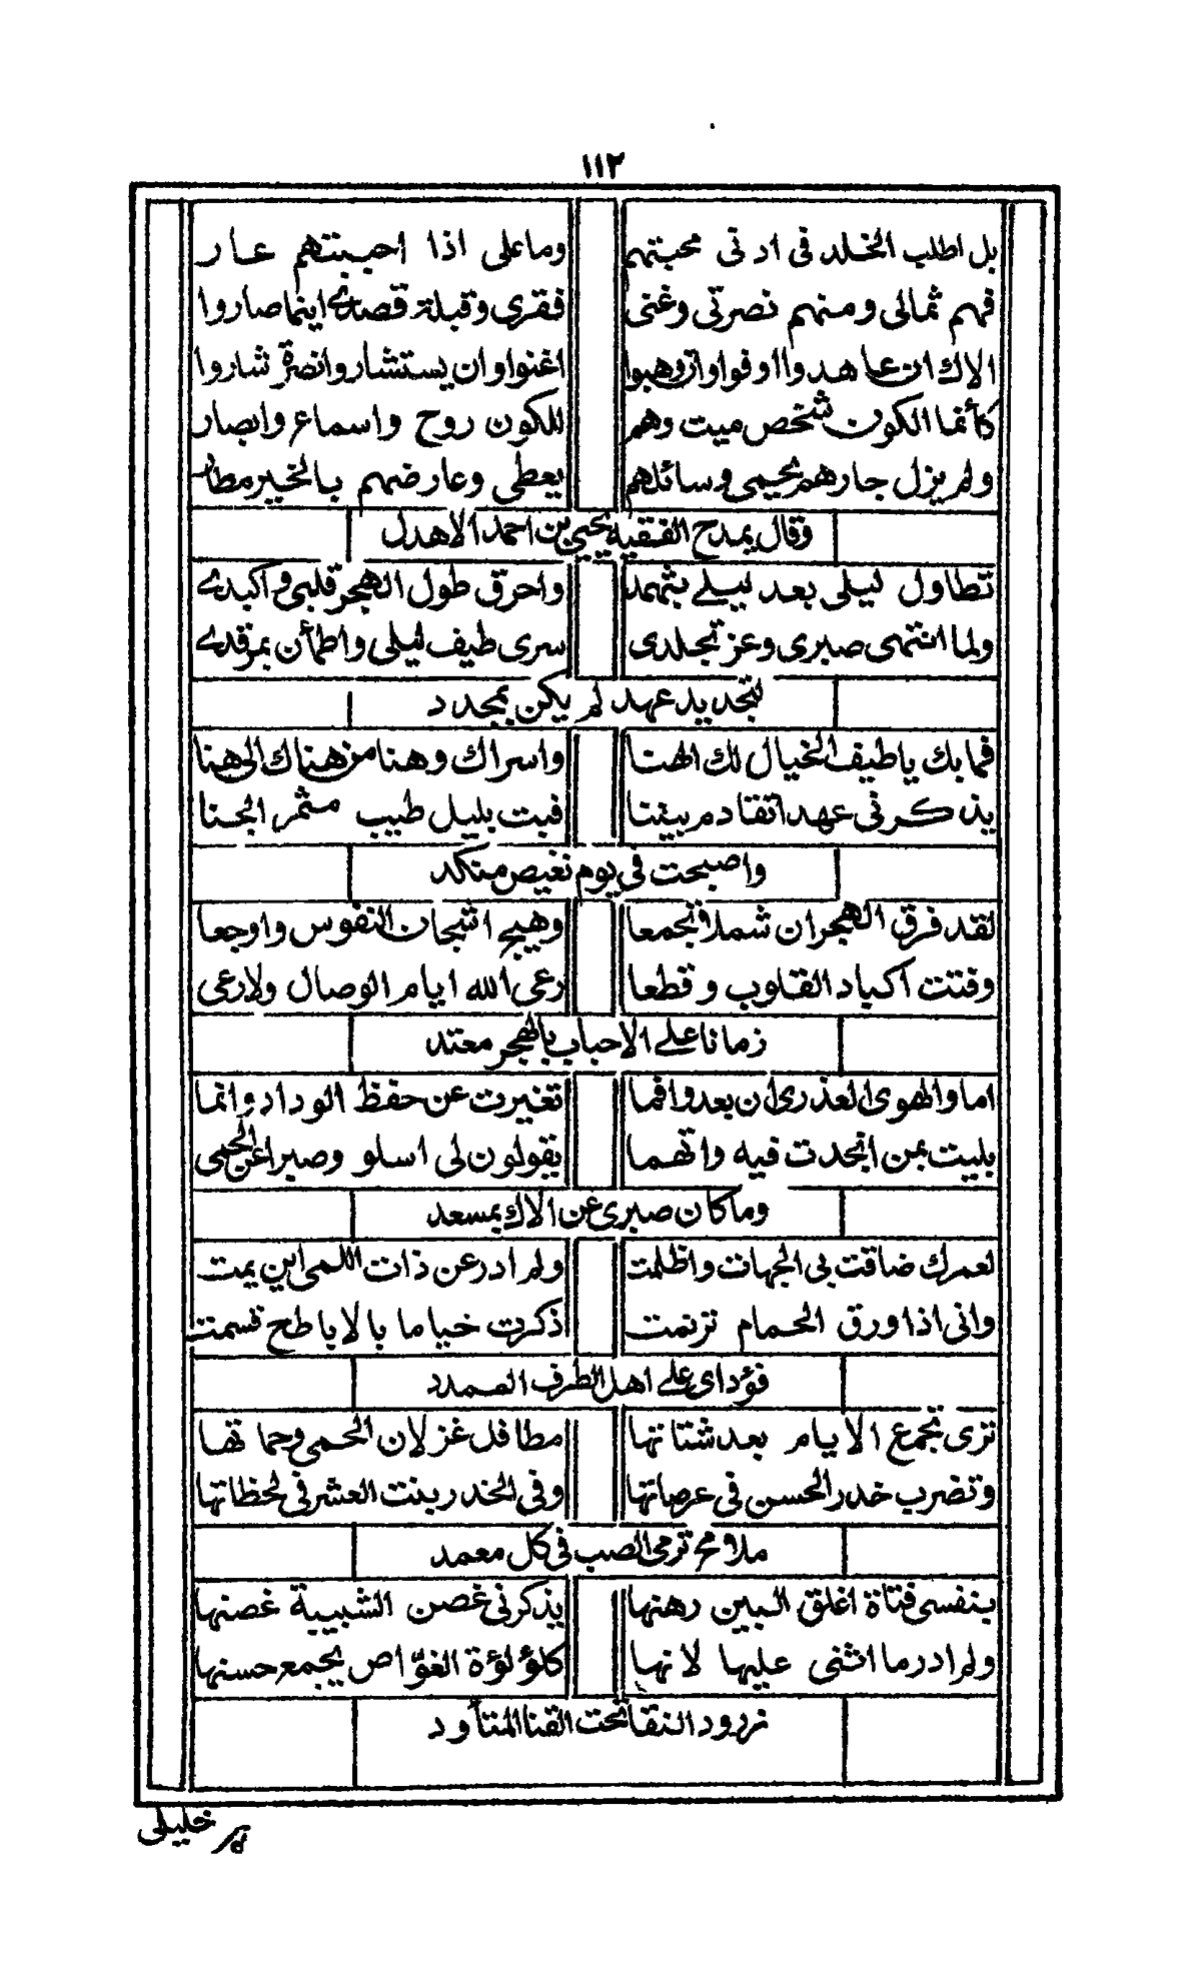 ١١٢
بل اطلب الخلد فى ادنى محبتهم وما على اذا احببتهم عار
فهم ثمالى ومنهم نصرتى وغنى فقرى وقبلة قصدى اينما صاروا
الاك ان عاهدوا اوفوا وان وهبوا اغنوا وان يستشاروا نصرة شاروا
كأنما الكون شخص ميت وهم للكون روح واسماع وابصار
ولم يزل جارهم يحيى وسائلهم يعطى وعارضهم بالخير مطار
وقال يمدح الفقيه يحيى بن احمد الاهدل
تطاول ليلى بعد ليلى بثهمد واحرق طول الهجر قلبى واكبدى
ولما انتهى صبرى وعز تجلدى سرى طيف ليلى واطمأن بمرقدى
لتجديد عهد لم يكن بمجدد
فما بك يا طيف الخيال لك الهنا واسراك وهنا من هناك الى هنا
يذكرنى عهدا تقادم بيننا فبت بليل طيب مثمر الجنا
واصبحت فى يوم نغيص منكد
لقد فرق الهجران شملا تجمعا وهيج اشجان النفوس واوجعا
وفتت اكباد القلوب وقطعا رعى الله ايام الوصال ولا رعى
زمانا على الاحباب بالهجر معتد
اما والهوى العذرى ان بعدوا فما تغيرت عن حفظ الوداد وانما
بليت بمن انجدت فيه واتهما يقولون لى اسلو وصبرا عن الحمى
وما كان صبرى عن الاك بمسعد
لعمرك ضاقت بى الجهات واظلمت ولم ادر عن ذات اللمى اين يمت
وانى اذا ورق الحمام ترنمت ذكرت خياما بالاباطح قسمت
فؤداى على اهل الطرف الممدد
ترى تجمع الايام بعد شتاتها مطافل غزلان الحمى وحماتها
وتضرب خدر الحسن فى عرصاتها وفى الخدر بنت العشر فى لحظاتها
ملامح ترمى الصب فى كل معمد
بنفسى فتاة اغلق البين رهنها يذكرنى غصن الشبيبة غصنها
ولم ادر ما اثنى عليها لانها كلؤلؤة الغوّاص يجمع حسنها
نردود النقا تحت القنا المتأود
خليلى